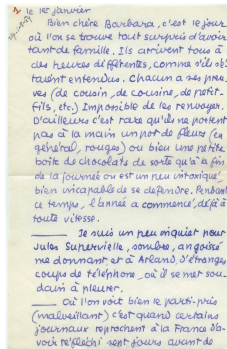 le 1er janvier
Bien chère Barbara, c'est le jour
où l'on se trouve tout surpris d'avoir
tant de famille. Ils arrivent tous à
des heures différentes, comme s'ils s'é
taient entendus. Chacun a ses preu
ves (de cousin, de cousine, de petit-
fils, etc.) Impossible de les renvoyer.
D'ailleurs c'est rare qu'ils ne portent
pas à la main un pot de fleurs (en
général, rouges) ou bien une petite
boîte de chocolats de sorte qu'à la fin
de la journée on est un peu intoxiqué
bien incapable de se défendre. Pendant
ce temps, l'année a commencé, déjà à
toute vitesse.
Je suis un peu inquiet pour
Jules Supervielle, sombre, angoissé
me donnant, et à Arland, d'étranges
coups de téléphone, où il se met sou-
dain à pleurer.
Où l'on voit bien le parti-pris
(malveillant) c'est quand certains
journaux reprochent à la France d'a-
voir réfléchi sept jours avant de